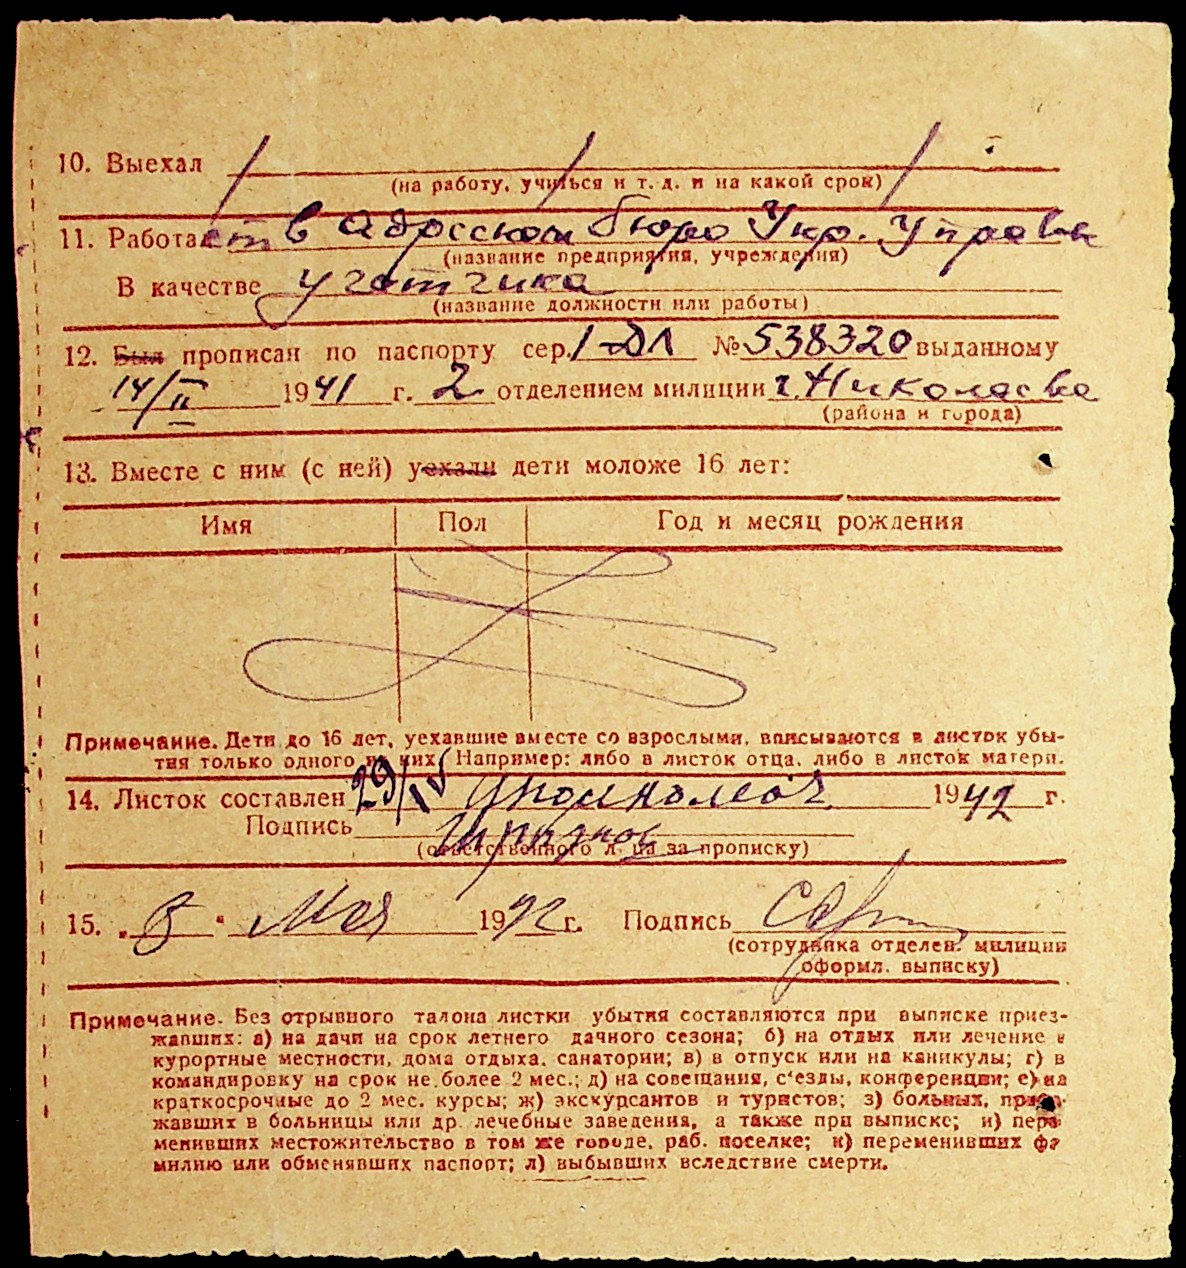 10. Выехал
(на работу, учиться и т. д. и на какой срок)
11. Работает в Адресном бюро Укр. Управы
(название предприятия, учреждения)
В качестве учетчика
(название должности или работы)
12. Был прописан по паспорту сер. I-ДЛ № 538320 выданному
14/II 1941 г. 2 отделением милиции г. Николаева
(района и города)
13. Вместе с ним (с ней) уехали дети моложе 16 лет:
Имя Пол Год и месяц рождения
Примечание. Дети до 16 лет, уехавшие вместе со взрослыми, вписываются в листок убы-
тия только одного из них. Например: либо в листок отца, либо в листок матери.
14. Листок составлен 29/IV 1942 г.
Подпись
(ответственного лица за прописку)
15. „8“ Мая 1942 г. Подпись
(сотрудника отделен. милиции
оформл. выписку)
Примечание. Без отрывного талона листки убытия составляются при выписке приез-
жавших: а) на дачи на срок летнего дачного сезона; б) на отдых или лечение в
курортные местности, дома отдыха, санатории; в) в отпуск или на каникулы; г) в
командировку на срок не более 2 мес.; д) на совещания, с'езды, конференции; е) на
краткосрочные до 2 мес. курсы; ж) экскурсантов и туристов; з) больных, приез-
жавших в больницы или др. лечебные заведения, а также при выписке; и) пере
менивших местожительство в том же городе, раб. поселке; к) переменивших фа
милию или обменявших паспорт; л) выбывших вследствие смерти.